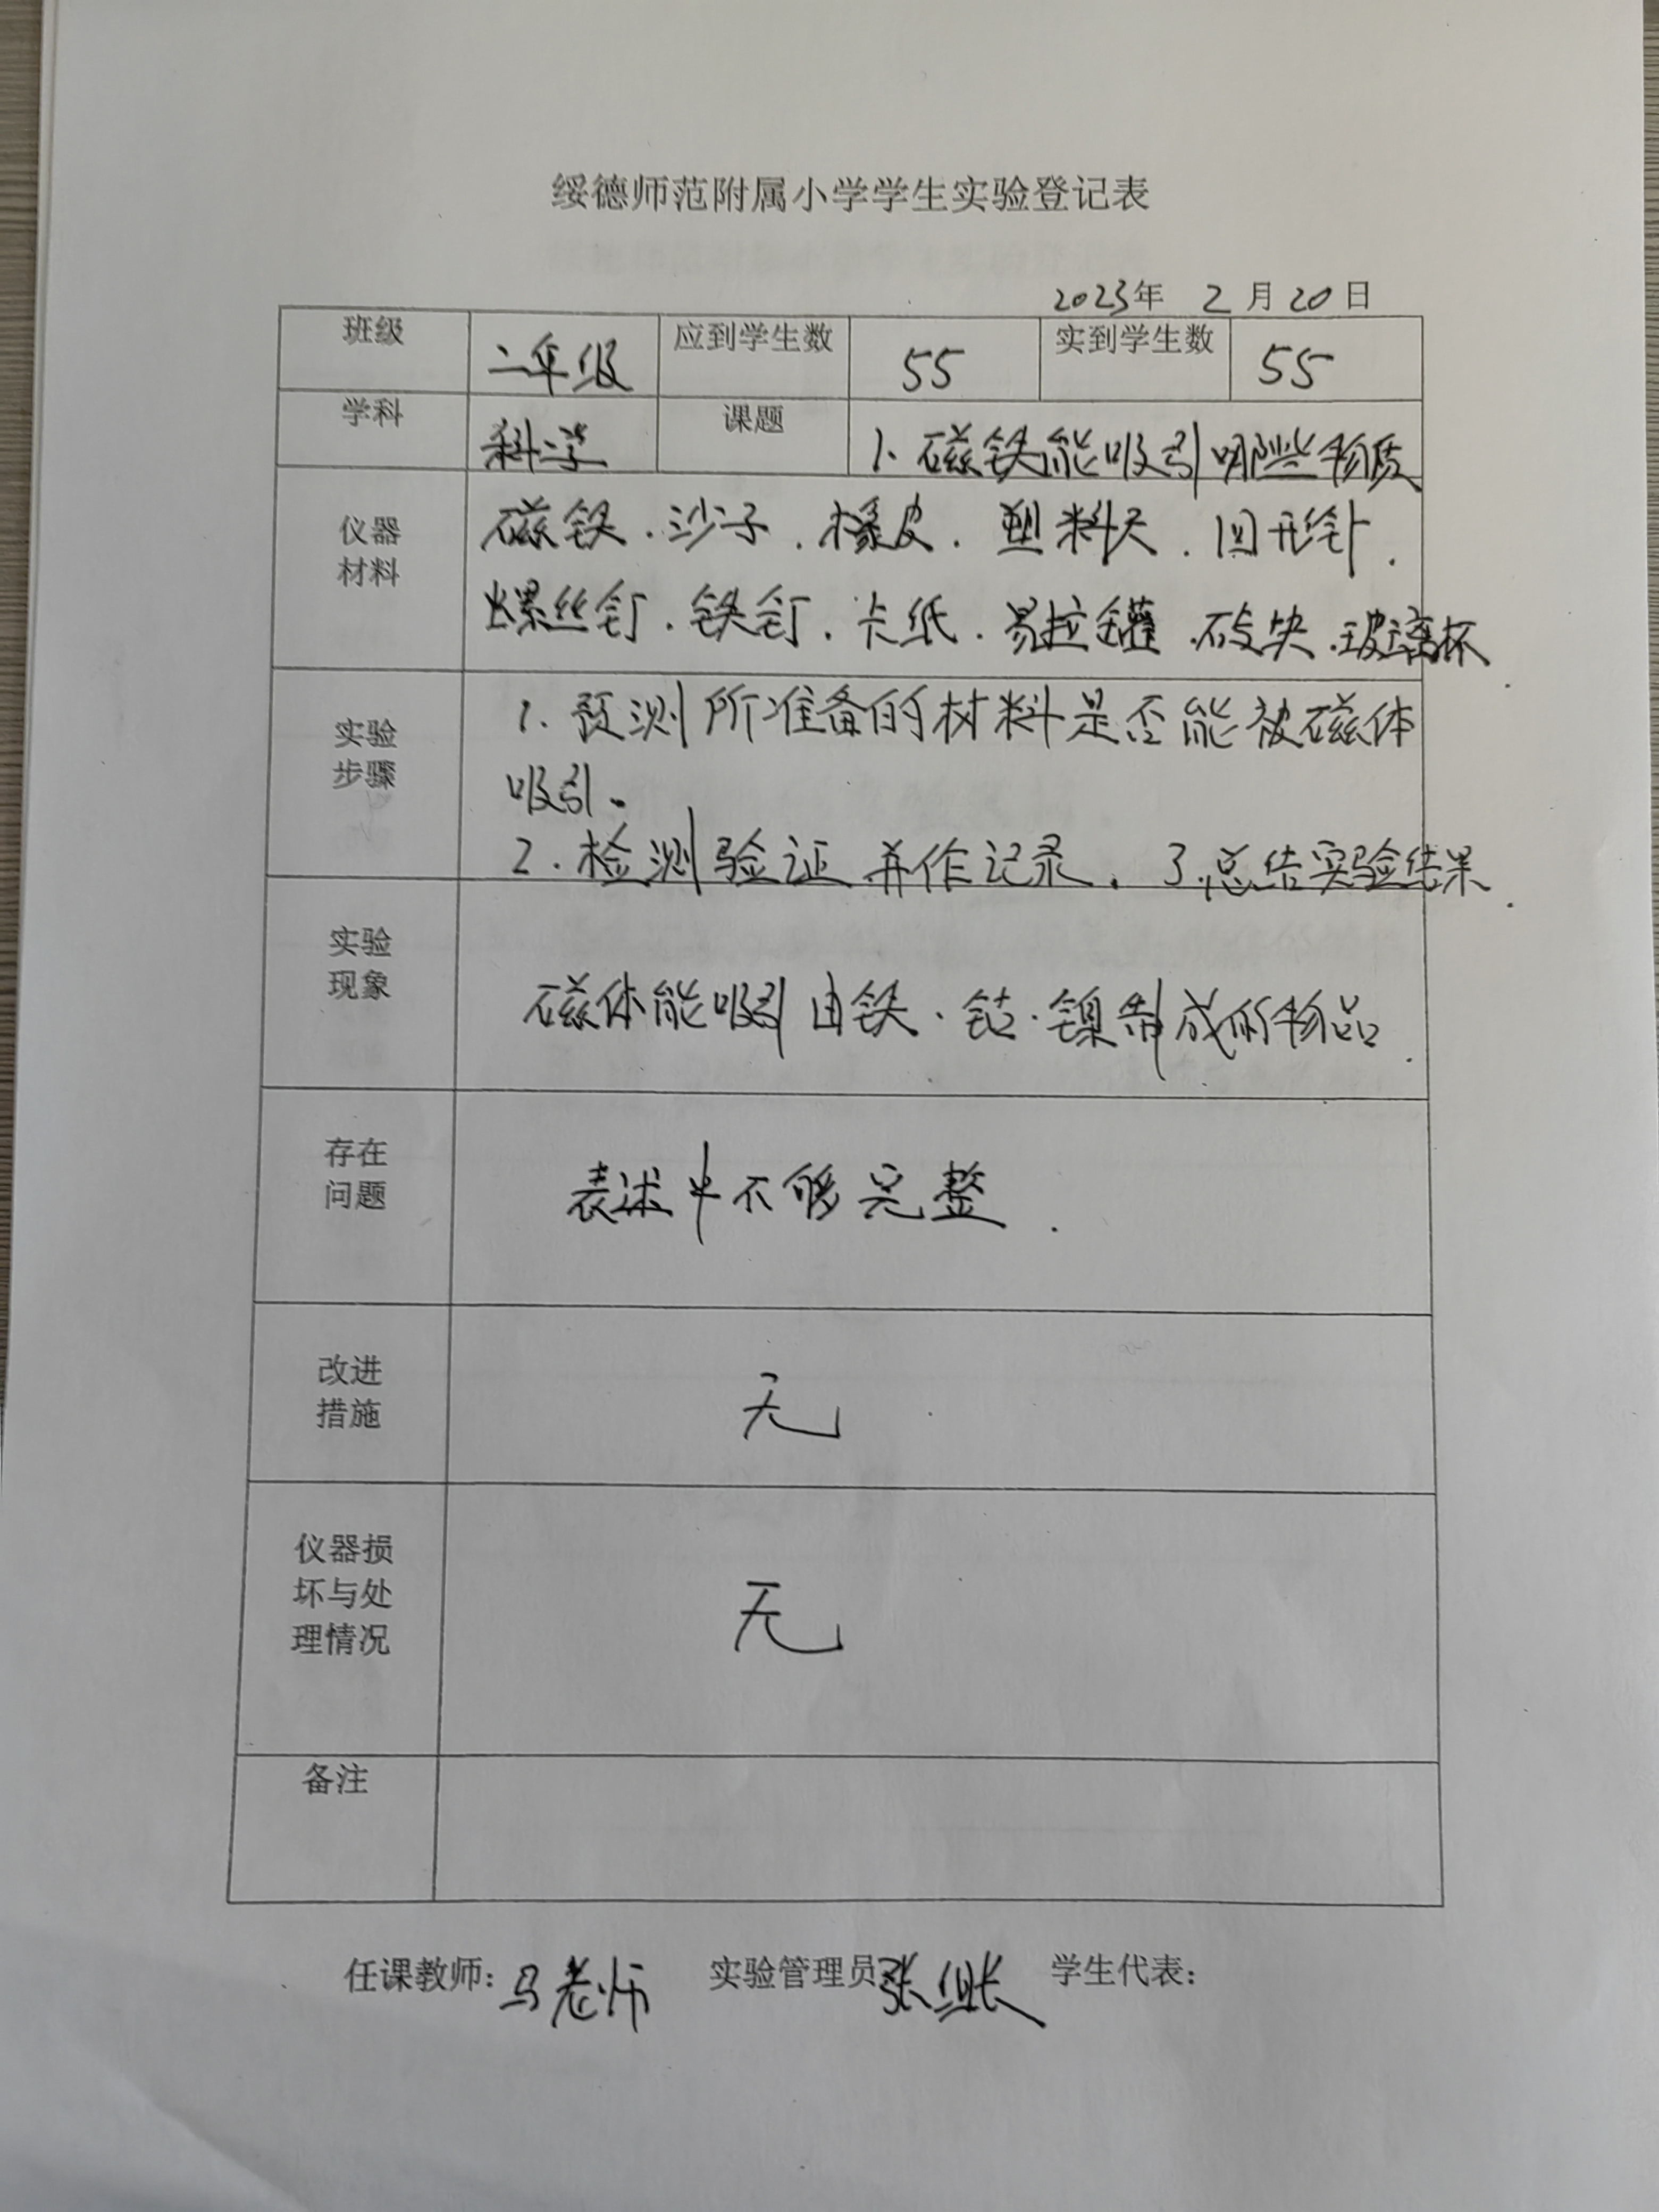 绥德师范附属小学学生实验登记表
2023年 2月20日
班级 二年级 应到学生数 55 实到学生数 55
学科 科学 课题 1.磁铁能吸引哪些物质
仪器
材料
磁铁.沙子.橡皮.塑料尺.回形针.
螺丝钉.铁钉.卡纸.易拉罐.砖块.玻璃杯.
实验
步骤
1.预测所准备的材料是否能被磁体
吸引.
2.检测验证并作记录. 3.总结实验结果.
实验
现象
磁体能吸引由铁.钴.镍制成的物品.
存在
问题
表述中不够完整.
改进
措施
无
仪器损
坏与处
理情况
无
备注
任课教师:马老师 实验管理员 张 学生代表: